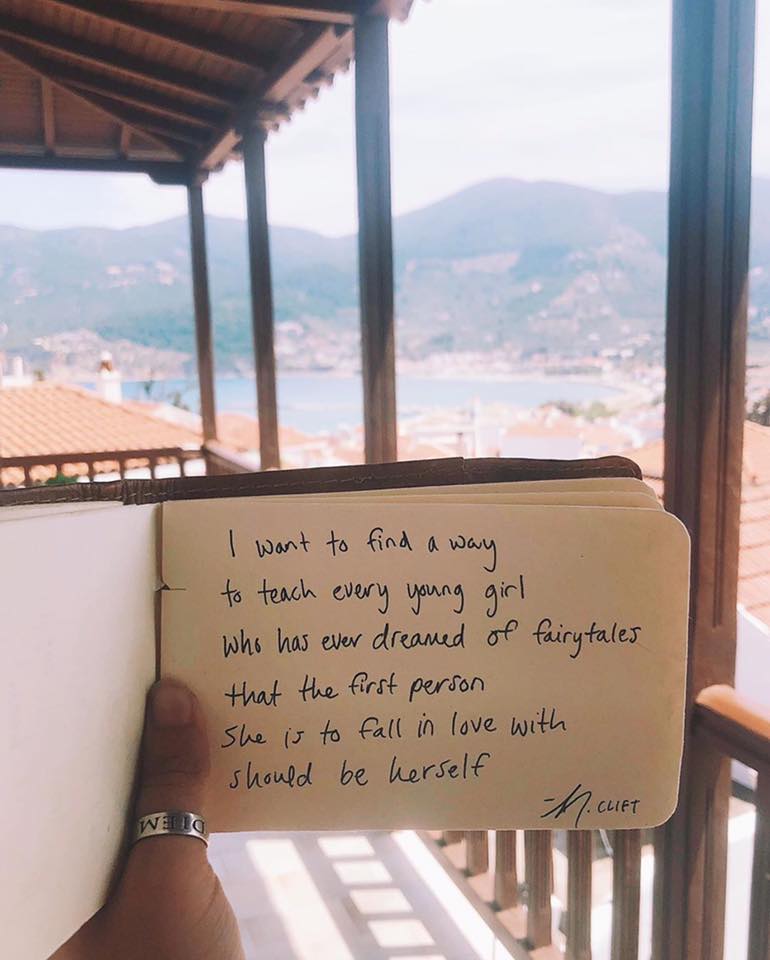 I want to find a way
to teach every young girl
who has ever dreamed of fairytales
that the first person
she is to fall in love with
should be herself
M. CLIFT
DIEM